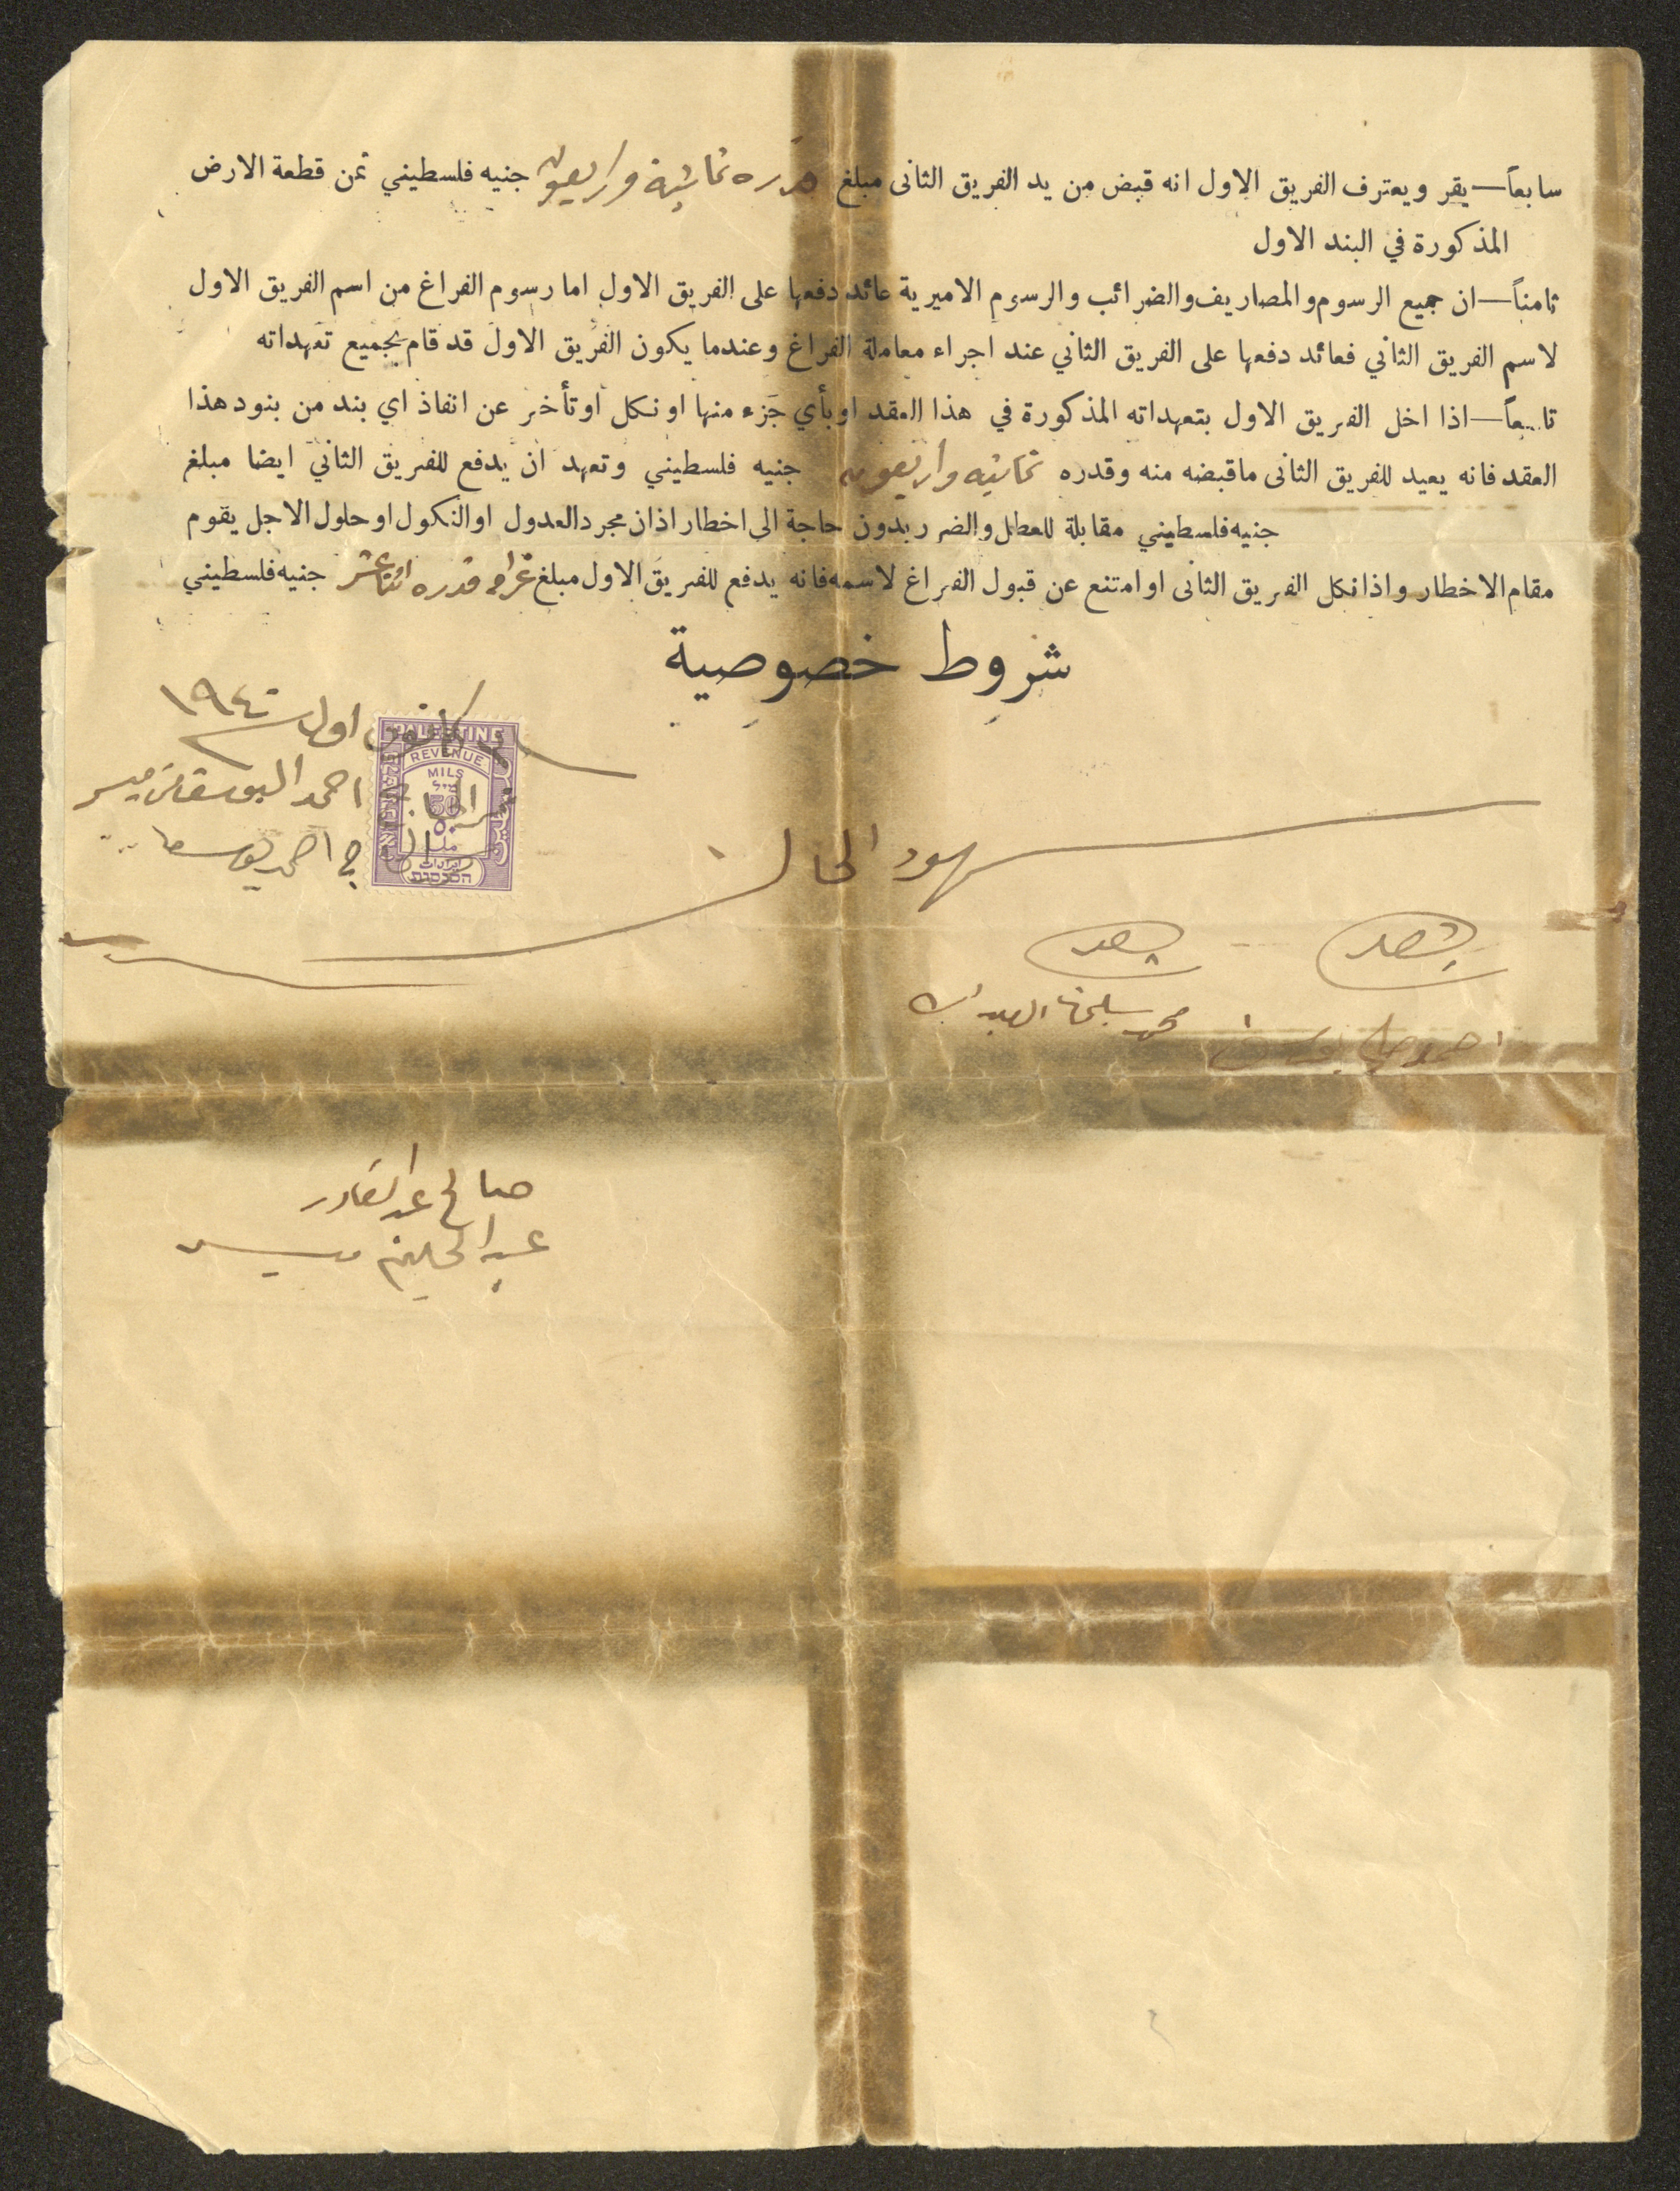 سابعاً — يقر ويعترف الفريق الاول انه قبض من يد الفريق الثانى مبلغ قدره ثمانية واربعون جنيه فلسطيني ثمن قطعة الارض
المذكورة في البند الاول
ثامناً — ان جميع الرسوم والمصاريف والضرائب والرسوم الاميرية عائد دفعها على الفريق الاول اما رسوم الفراغ من اسم الفريق الاول
لاسم الفريق الثاني فعائد دفعها على الفريق الثاني عند اجراء معاملة الفراغ وعندما يكون الفريق الاول قد قام بجميع تعهداته
تاسعاً — اذا اخل الفريق الاول بتعهداته المذكورة في هذا العقد او بأي جزء منها او نكل او تأخر عن انفاذ اي بند من بنود هذا
العقد فانه يعيد للفريق الثانى ما قبضه منه وقدره ثمانيه واربعون جنيه فلسطيني وتعهد ان يدفع للفريق الثاني ايضا مبلغ
جنيه فلسطيني مقابلة للعطل والضرر بدون حاجة الى اخطار اذ ان مجرد العدول او النكول او حلول الاجل يقوم
مقام الاخطار واذا نكل الفريق الثانى او امتنع عن قبول الفراغ لاسمه فانه يدفع للفريق الاول مبلغ غرامه قدره اثنا عشر جنيه فلسطيني
شروط خصوصية
كانون اول سنة ١٩٤٠
PALESTINE
REVENUE
MILS
50
٥٠
الحاج احمد
احمد
شهود الحال
شهد
شهد
احمد
محمد سليمان العبد
صالح عبد القادر
عبد الحليم